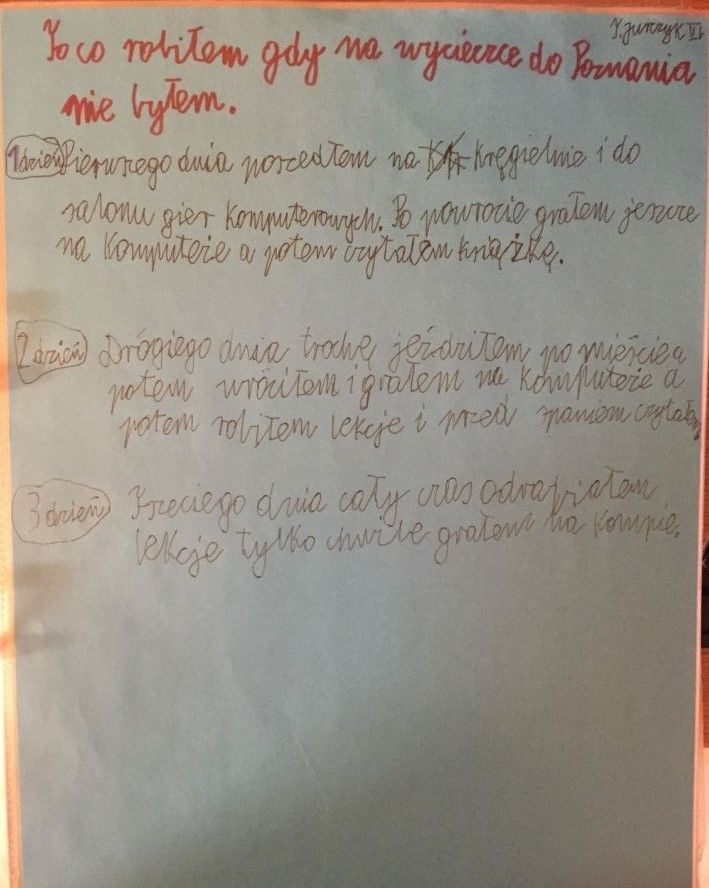 J. Jurczyk VI
To co robiłem gdy na wycieczce do Poznania
nie byłem.
1 dzień Pierwszego dnia poszedłem na kręgielnie i do
salonu gier komputerowych. Po powrocie grałem jeszcze
na komputeże a potem czytałem książkę.
2 dzień Drógiego dnia trochę jeździłem po mieście a
potem wróciłem i grałem na komputeże a
potem robiłem lekcje i przed spaniem czytałem
3 dzień Trzeciego dnia cały czas odrabiałem
lekcje tylko chwile grałem na kompie.